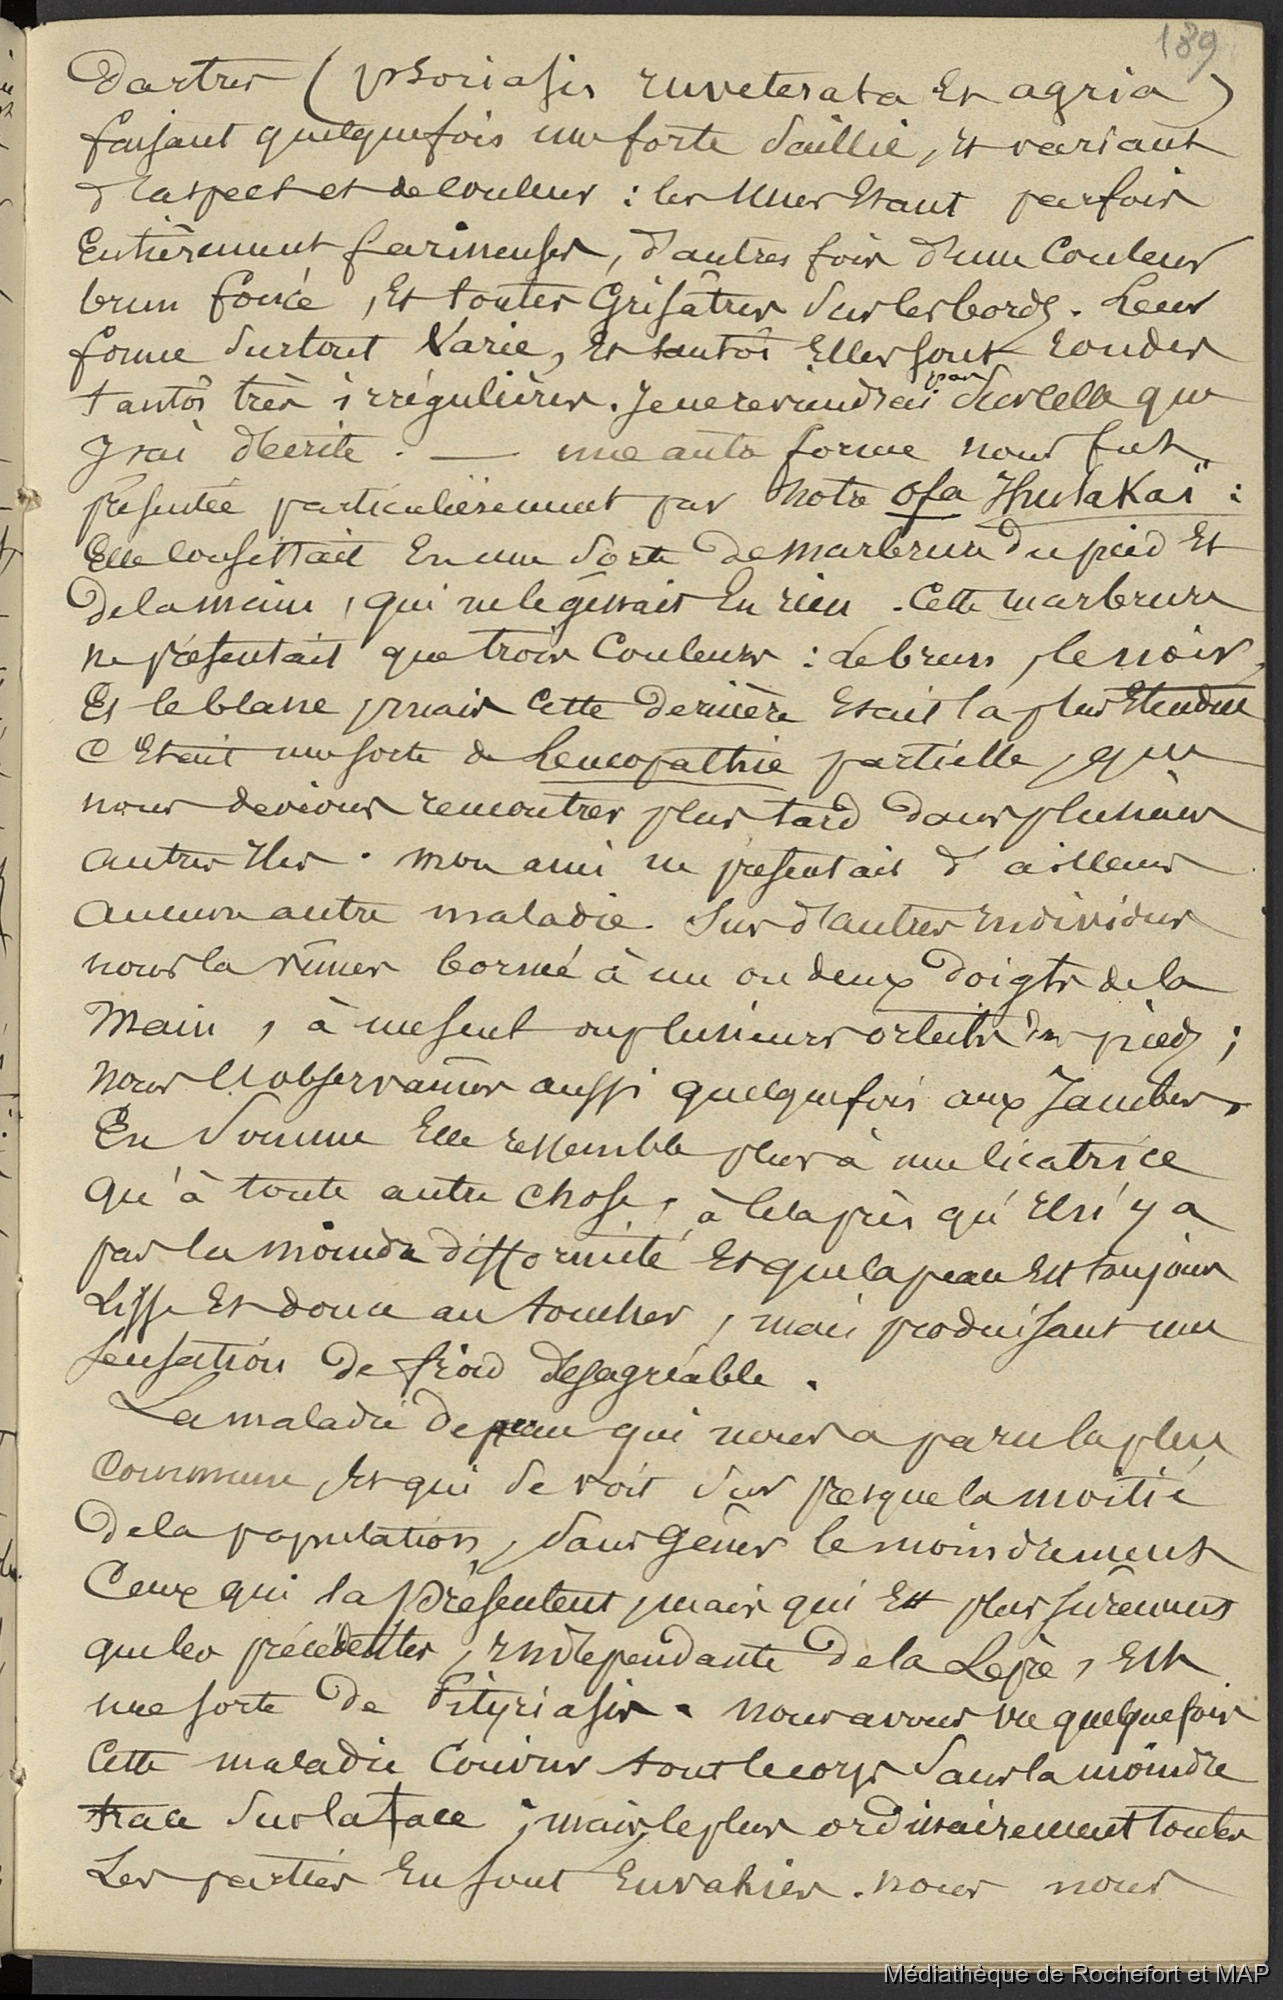 189
Dartres (psoriasis inveterata et agria)
faisant quelquefois une forte saillie, et variant
d'aspect et de couleur : les unes étant parfois
entièrement farineuses, d'autres fois d'une couleur
brun foncé, et toutes grisâtres sur les bords. Leur
forme surtout varie, et tantôt elles sont rondes
tantôt très irrégulières. Je ne reviendrai pas sur celle que
j'ai décrite. — une autre forme nous fut
présentée particulièrement par notre ofa :
Elle consistait en une sorte de marbrure du pied et
de la main, qui ne le gênait en rien. Cette marbrure
ne présentait que trois couleurs : le brun, le noir,
et le blanc, mais cette dernière était la plus étendue
c'était une sorte de leucopathie partielle, que
nous devions rencontrer plus tard dans plusieurs
autres îles. mon ami ne présentait d'ailleurs
aucune autre maladie. Sur d'autres individus
nous la vîmes bornée à un ou deux doigts de la
main, à un seul ou plusieurs orteils des pieds ;
nous l'observâmes aussi quelquefois aux jambes,
En somme elle ressemble plus à une cicatrice
qu'à toute autre chose, à cela près qu'il n'y a
pas la moindre difformité et que la peau est toujours
lisse et douce au toucher, mais produisant une
sensation de froid désagréable.
La maladie de peau qui nous a paru la plus
commune, et qui se voit sur presque la moitié
de la population, sans gêner le moindrement
ceux qui la présentent, mais qui est plus sûrement
que les précédentes, indépendante de la Lèpre, est
une sorte de Pityriasis. nous avons vu quelquefois
cette maladie couvrir tout le corps sans la moindre
trace sur la face ; mais le plus ordinairement toutes
les parties en sont envahies. nous nous
Médiathèque de Rochefort et MAP